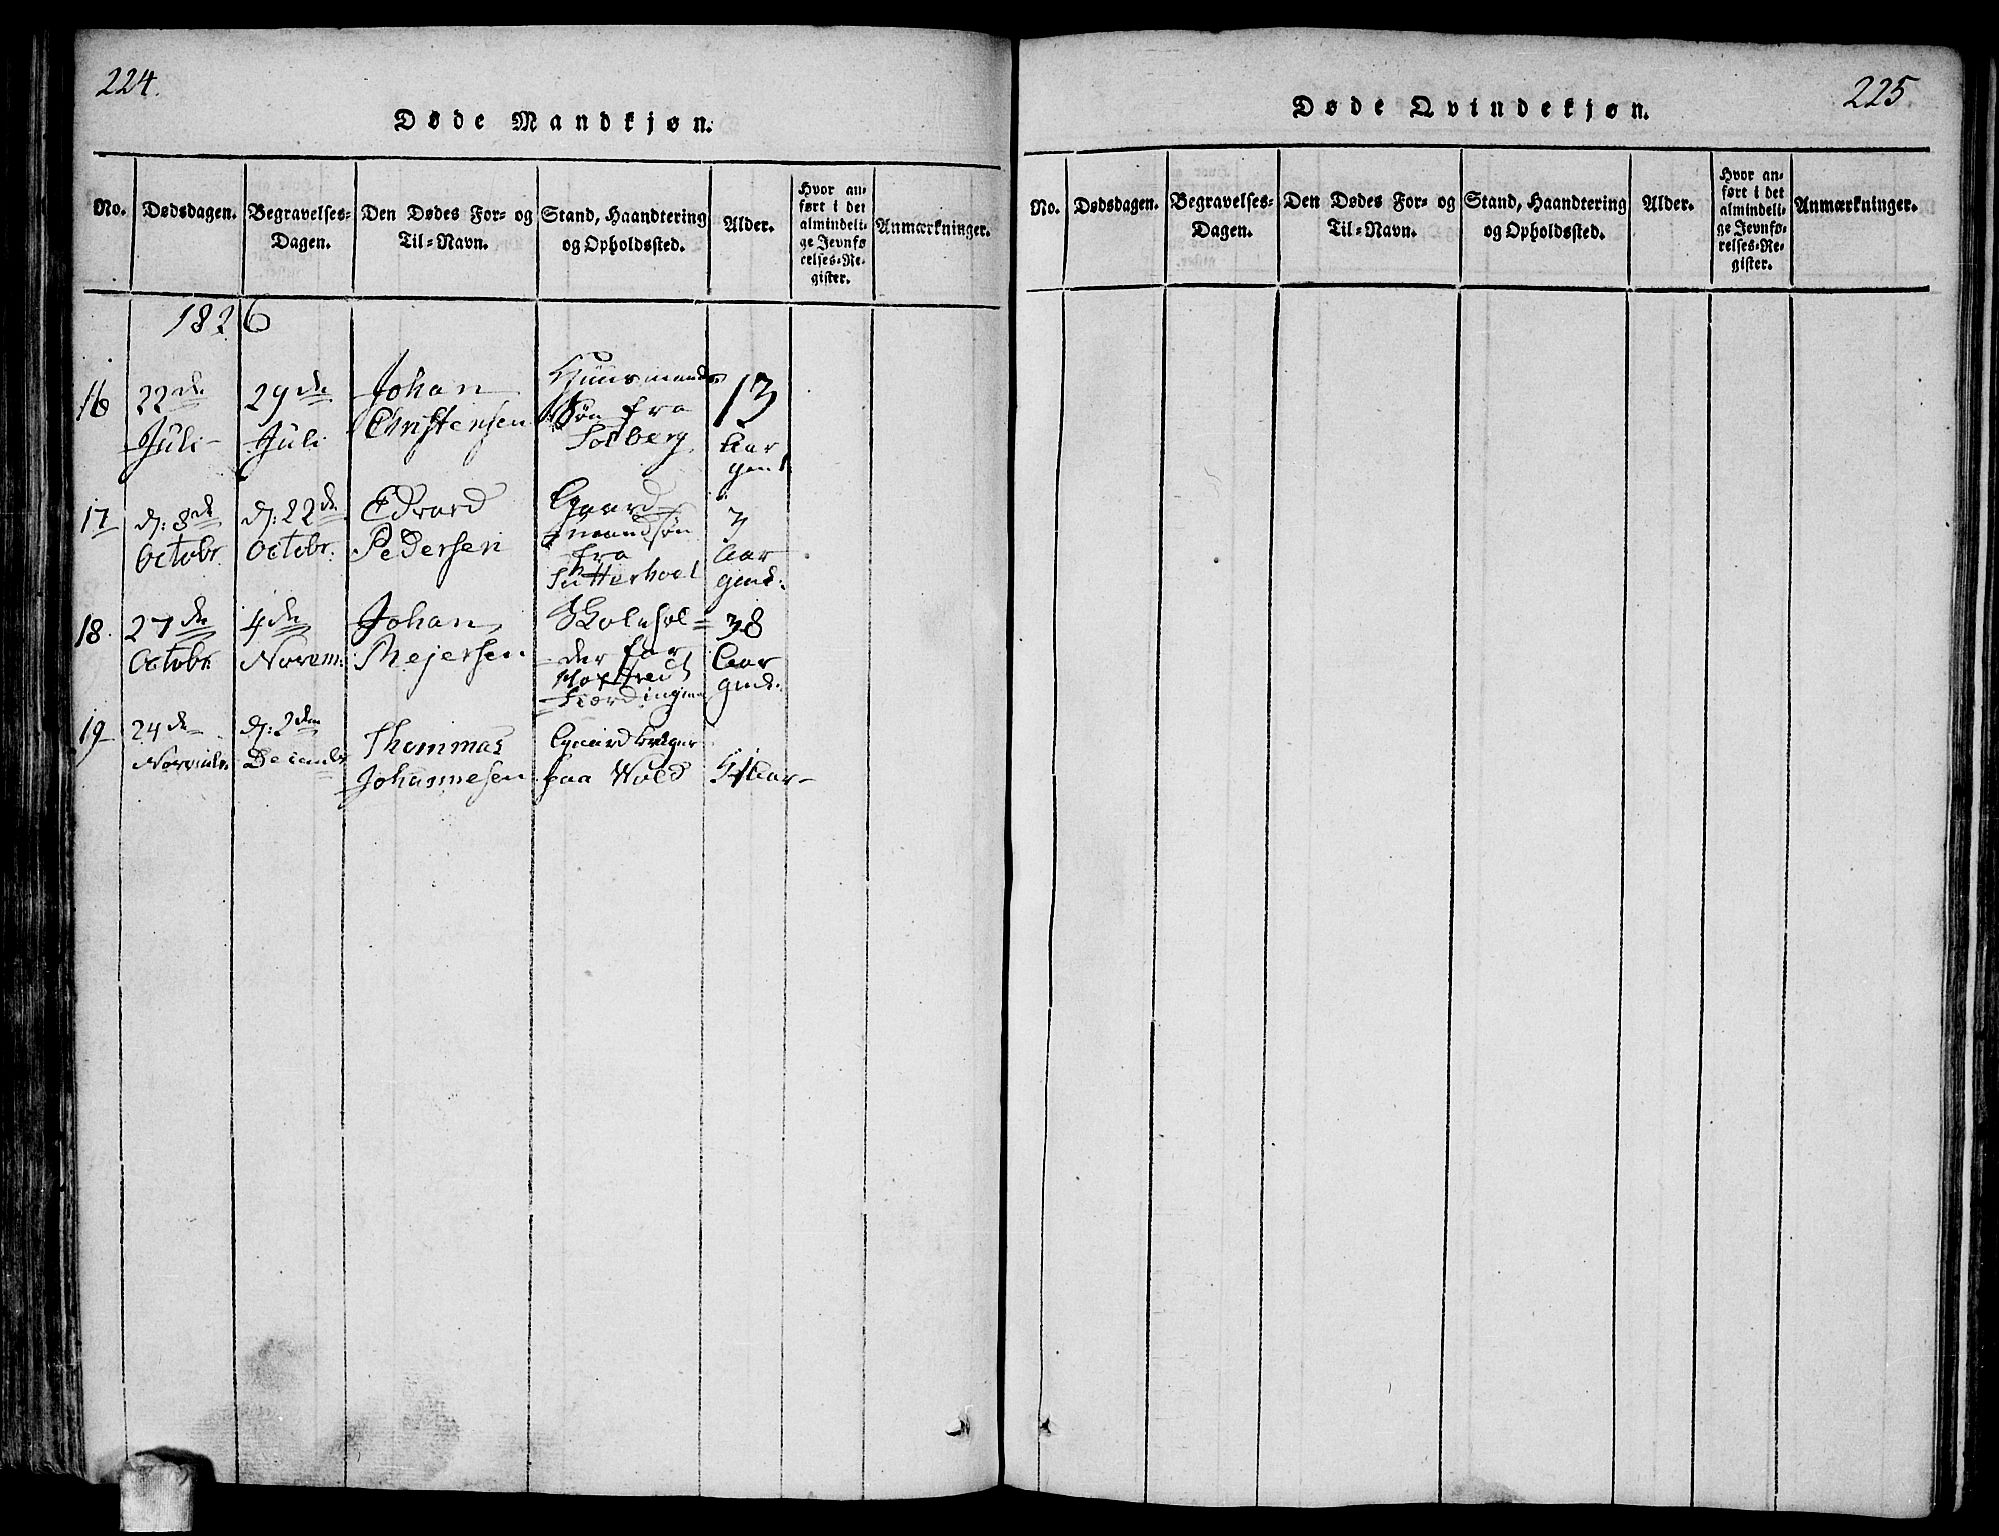 224.
Døde Mandkjøn.
No. Dødsdagen. Begravelses-Dagen. Den Dødes For- og Til-Navn. Stand, Haandtering og Opholdssted. Alder. Hvor anført i det almindelige Jevnførelses-Register. Anmærkninger.
1826
16 22de Juli 29de Juli Johan Christensen Huusmands Søn fra Solberg 13 Aar
17 d: 8de Octobr. d: 22de Octobr. Edvard Pedersen Gaardmandsøn fra 7 Aar
18. 27de Octobr. 4de Novem: Johan Mejersen Skolehol= der for Fierdingen 38 Aar
19 24de d: 2den Decembr Thommas Johannesen Gaardbruger paa Wold Aar
225
Døde Qvindekjøn.
No. Dødsdagen. Begravelses-Dagen. Den Dødes For- og Til-Navn. Stand, Haandtering og Opholdssted. Alder. Hvor anført i det almindelige Jevnførelses-Register. Anmærkninger.